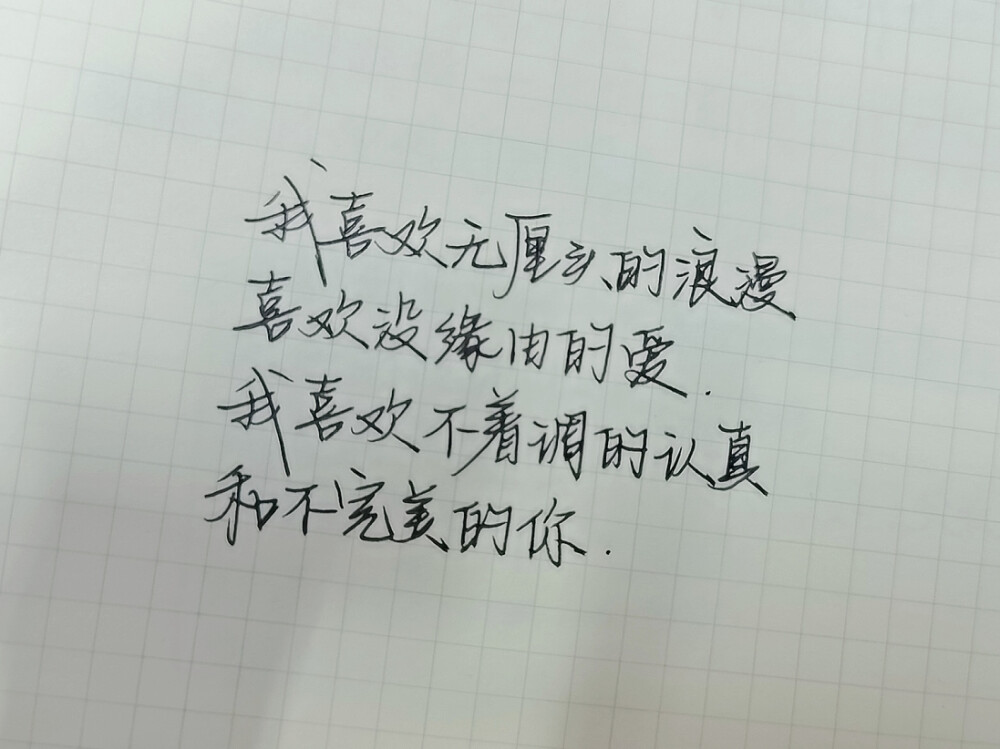 我喜欢无厘头的浪漫
喜欢没缘由的爱.
我喜欢不着调的认真
和不完美的你.